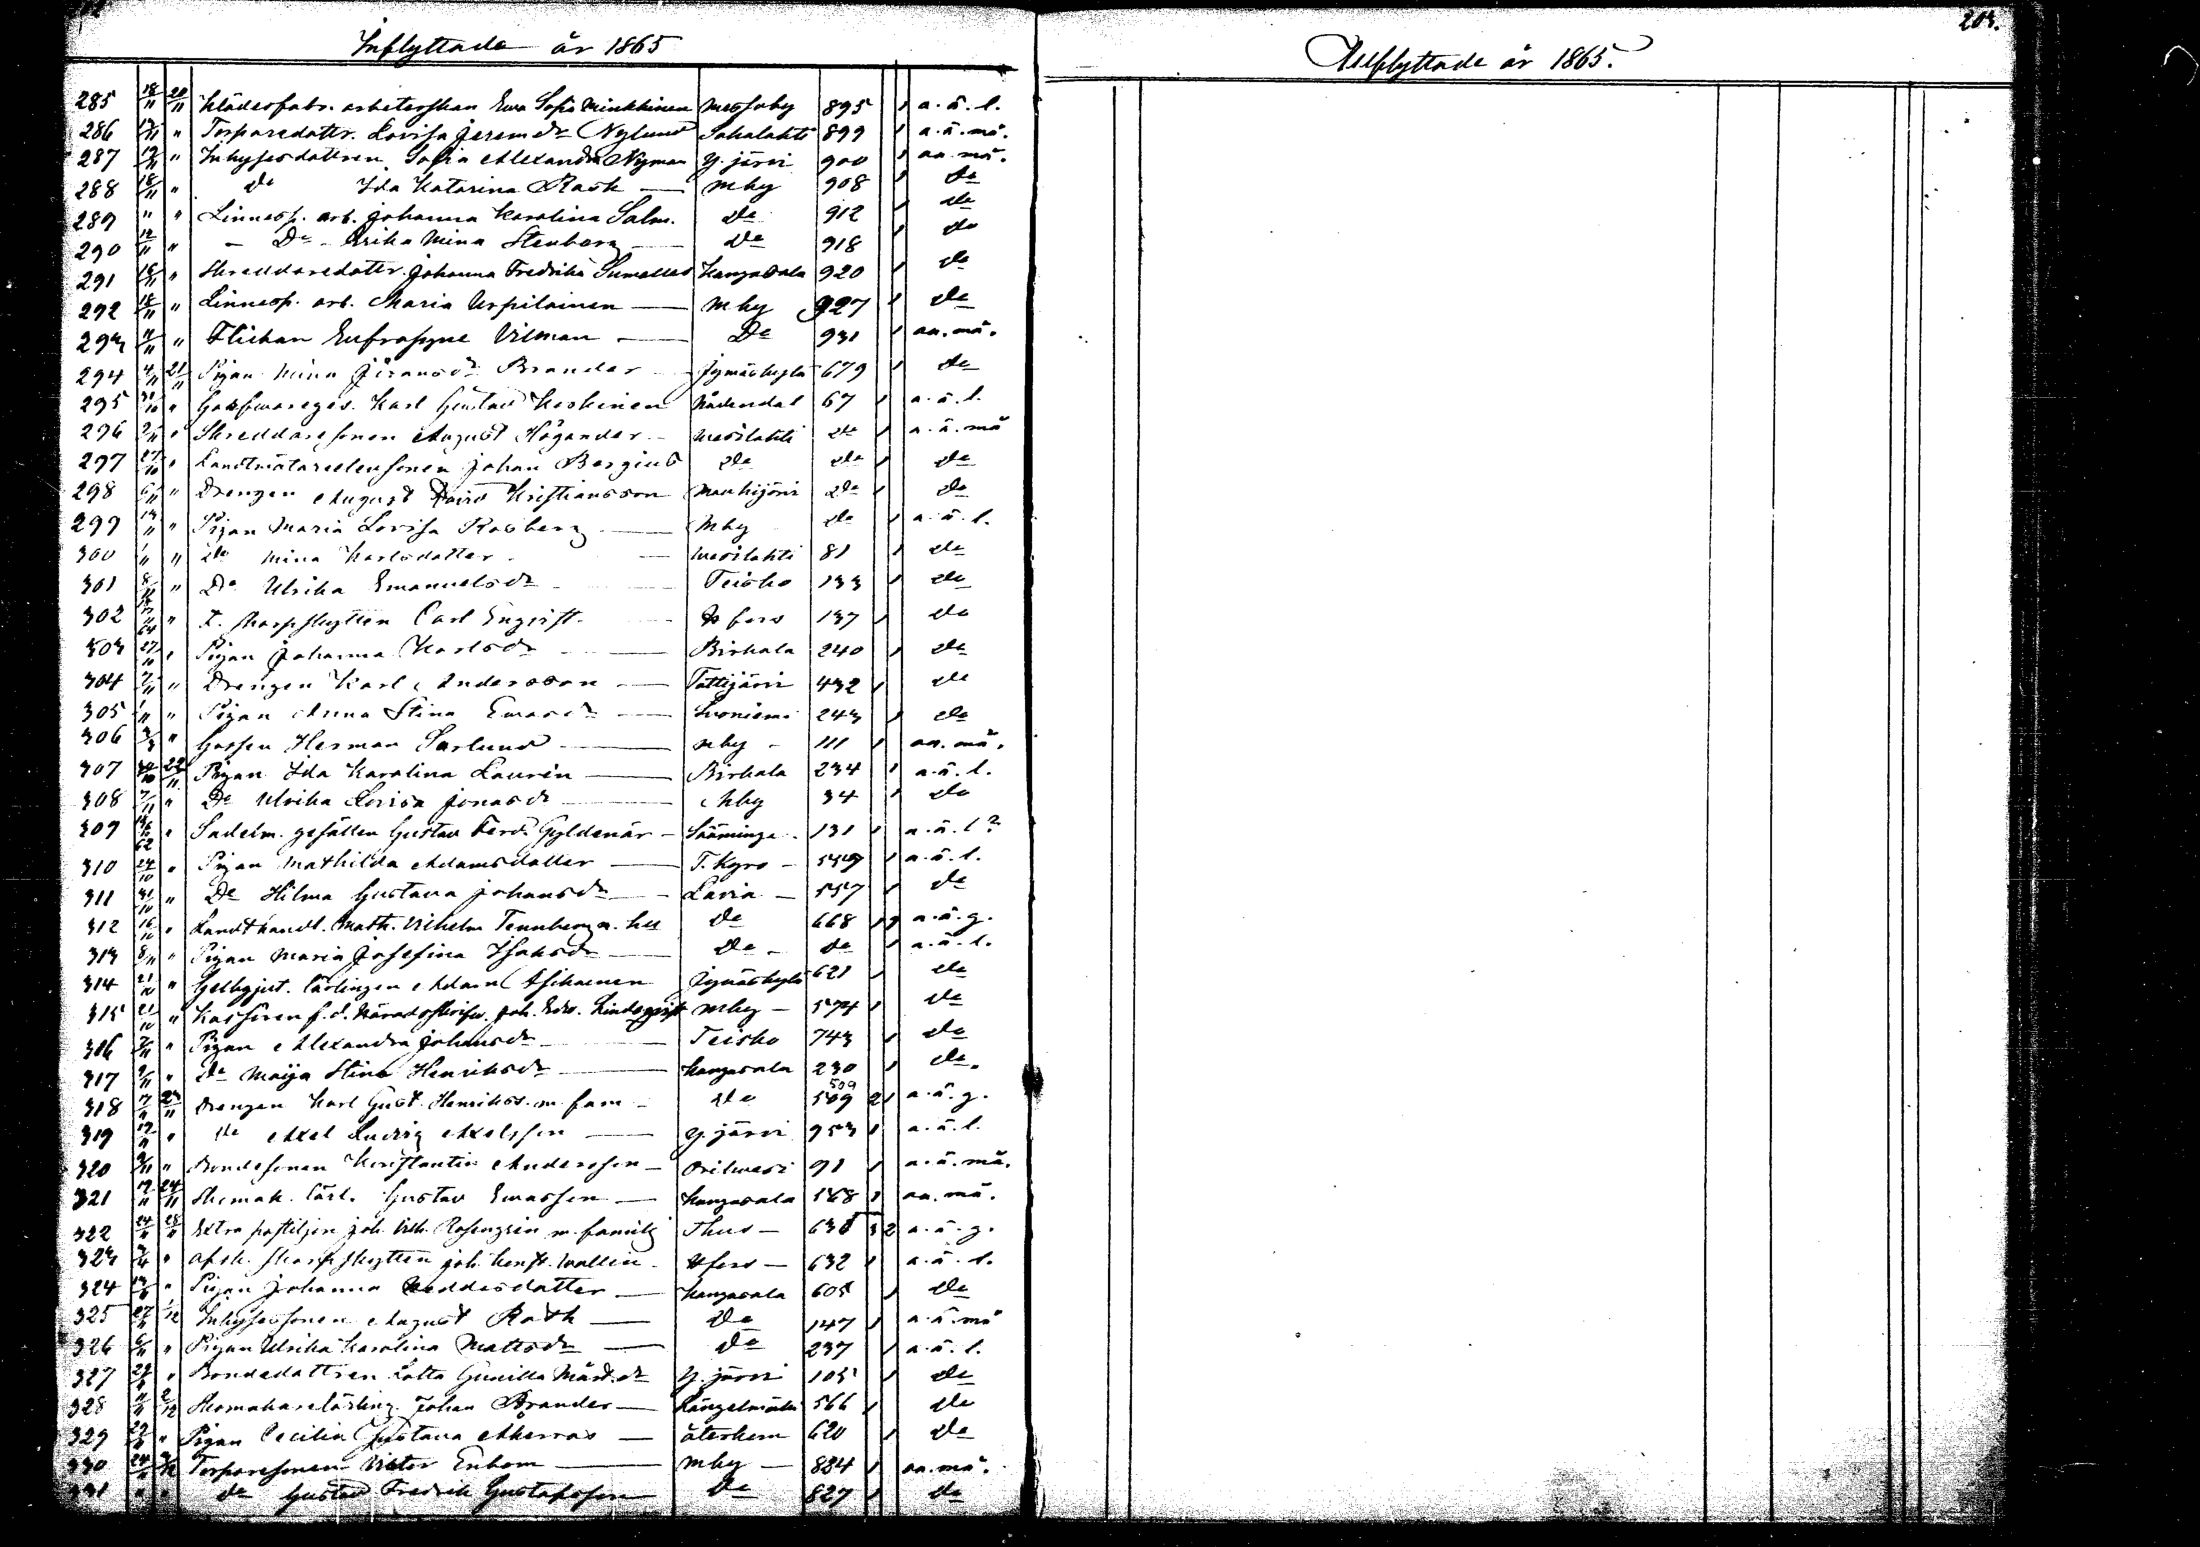 Inflyttade år 1865
285 18/11 20/11 Klädesfabr. arbeterskan Ewa Sofia Minkkinen Messuby 895 1 a.ä.l.
286 " Torparedottr. Lovisa Jeremdr Nylund Sahalahti 899 1 a.ä.må.
287 19/11 " Inhysesdottren Sofia Alexandra Nyman Y. järvi 900 1 aa.må.
288 18/11 " do Ida Katarina Rask — Mby 908 1 do
289 " " Linnesp. arb. Johanna Karolina Salm. do 912 1 do
290 12/11 " — Do Erika Mina Stenberg — do 918 1 do
291 18/11 " Skreddaredottr. Johanna Fredrika Kangasala 920 1 do
292 18/11 " Linnesp. arb. Maria Urpilainen — Mby 927 1 do
293 " Flickan Eufrosyne Vilman — Do 931 1 aa.må.
294 4/11 21/11 Pigan Mina Jöransdr Brander Jyväskylä 679 1 do
295 31/10 " Karl Gustav Keskinen Nådendal 67 1 a.ä.l.
296 2/11 " Skreddaresonen August Högander — Wesilahti do 1 a.ä.må
297 27/10 " Landtmätareelevsonen Johan Bergius do do 1 do
298 6/11 " Drengen August David Kristiansson Mouhijärvi do 1 do
299 " Pigan Maria Lovisa Rosberg — Mby do 1 a.ä.l.
300 1/11 " do Mina Karlsdotter — Wesilahti 81 1 do
301 8/11 " Do Ulrika Emanuelsdr — Teisko 133 1 do
302 " F. skarpskytten Carl Enqvist — H fors 137 1 do
303 27/10 " Pigan Johanna Karlsdr — Birkala 240 1 do
304 7/11 " Drengen Karl Andersson — Tottijärvi 432 1 do
305 1/11 " Pigan Anna Stina Ewasdr — Suoniemi 243 1 do
306 " Gossen Herman Sarlund — Mby — 111 1 aa.må.
307 30/10 22/11 Pigan Ida Karolina Laurén — Birkala 234 1 a.ä.l.
308 7/11 " Do Ulrika Lovisa Jonasdr — Mby 34 1 do
309 " Sadelm. gesällen Gustav Ferd. Gyldenär — Sääminge 131 1 a.ä.l?
310 24/10 " Pigan Mathilda Adamsdotter — T. Kyro — 549 1 a.ä.l.
311 31/10 " Do Hilma Gustava Johansdr — Lavia — 557 1 do
312 16/10 " Landthandl. Math. Vilhelm Tennberg m. hu do 668 1 1 a.ä.g.
313 8/11 " Pigan Maria Josefina Isaksdr — do — do 1 a.ä.l.
314 21/10 " Gelbgjut. lärlingen Adam Jyväskylä 621 1 do
315 21/10 " Kassören f.d. Häradsskrifv. Joh. Edv. Lindeqvist Mby — 574 1 do
316 7/11 " Pigan Alexandra Johansdr — Teisko 743 1 do
317 9/11 " do Maija Stina Henriksdr — Kangasala 230 1 do.
318 17/11 23/11 Drengen Karl Gust. Henrikss. m. fam — do 509 2 1 a.ä.g.
319 19/11 " do Axel Ludvig Axelsson — Y. järvi 953 1 a.ä.l.
320 9/11 " Bondesonen Konstantin Andersson — Orihvesi 91 1 a.ä.må.
321 19/11 24/11 Skomak. lärl. Gustav Ewasson — Kangasala 168 1 aa.må.
322 24/11 28/11 Extra postiljon Joh. Vilh. Rosengren m. familj Thus — 638 3 2 a.ä.g.
323 " Afsk. skarpskytten Joh. Konst. Wallin — H fors — 632 1 a.ä.l.
324 " Pigan Johanna — Kangasala 605 1 do
325 27/11 1/12 Inhysessonen August Rath — Do 147 1 a.ä.må
326 6/11 " Pigan Ulrika Karolina Mattsdr — do 237 1 a.ä.l.
327 " Bondedottren Lotta Gunilla Y. järvi 105 1 do
328 2/12 Skomakarelärling. Johan Brander — Längelmäki 566 1 do
329 " Pigan Cecilia Gustava Akerros — återkom 620 1 do
330 Torparesonen Viktor Enbom — Mby — 884 1 aa.må.
331 " " do Gustav Fredrik Gustafsson — Do 827 1 do
Utflyttade år 1865.
203.